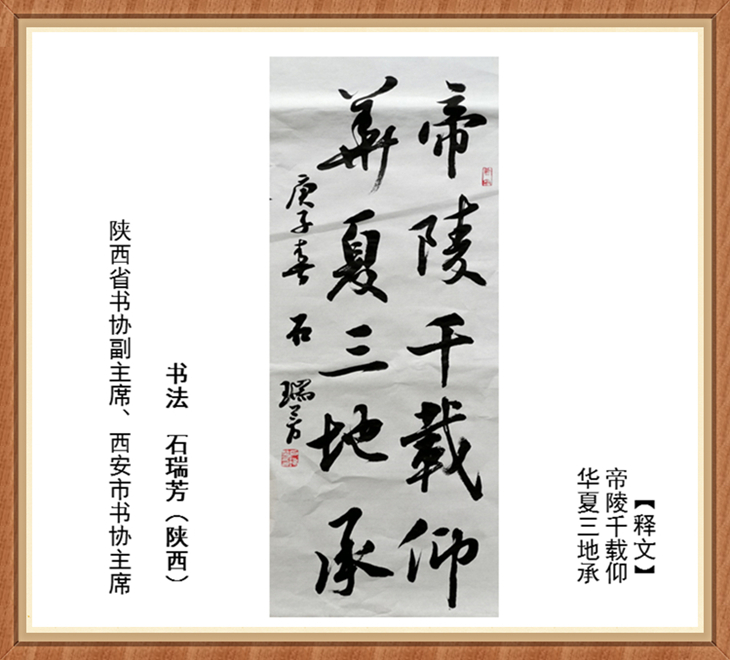 【释文】
帝陵千载仰
华夏三地承
帝陵千载仰
華夏三地承
庚子春 石瑞芳
书法 石瑞芳（陕西）
陕西省书协副主席、西安市书协主席